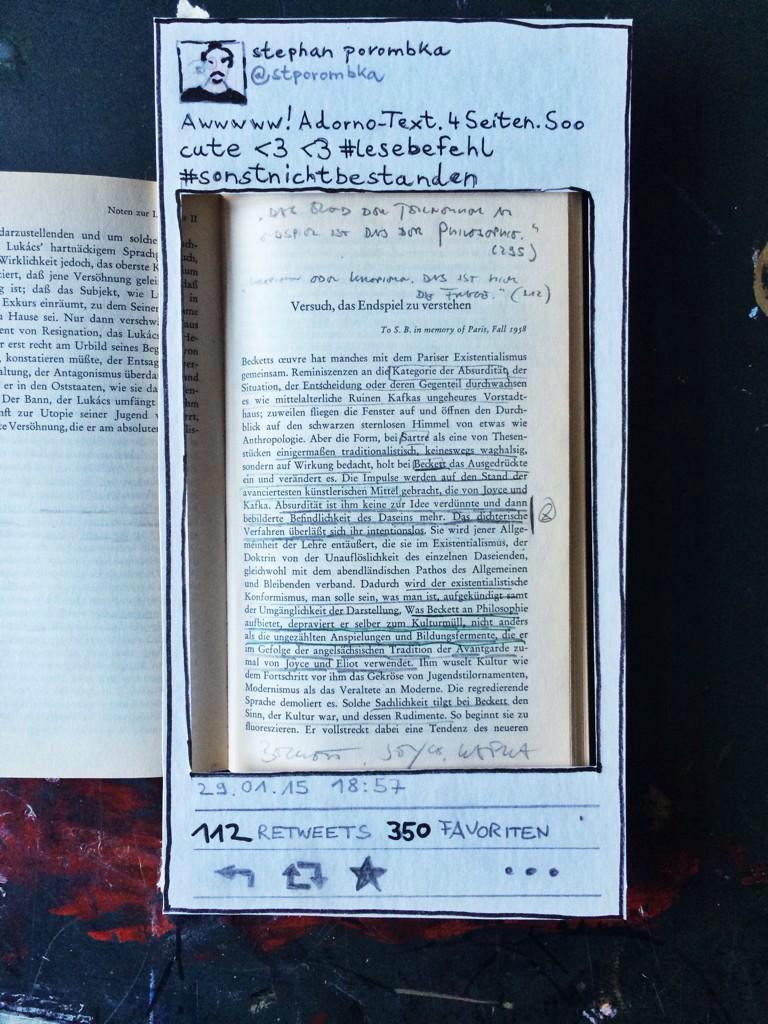 stephan porombka
@stporombka
Awwwww! Adorno-Text. 4 Seiten. Soo
cute <3 <3 #lesebefehl
#sonstnichtbestanden
Noten zur L
II
darzustellenden und um solche
Lukács' hartnäckigem Sprach
Wirklichkeit jedoch, das oberste K
ziert, daß jene Versöhnung gelei
ist; daß das Subjekt, wie L
Exkurs einräumt, zu dem Seiner
Hause sei. Nur dann verschw
ent von Resignation, das Lukác
erst recht am Urbild seines Beg
konstatieren müßte, der Entsag
altung, der Antagonismus überda
er in den Oststaaten, wie sie da
Der Bann, der Lukács umfängt
nft zur Utopie seiner Jugend
te Versöhnung, die er am absoluten
ENDSPIEL IST DAS DER PHILOSOPHIE."
(295)
DAS IST HIER
DIE FRAGE." (312)
Versuch, das Endspiel zu verstehen
To S. B. in memory of Paris, Fall 1958
Becketts œuvre hat manches mit dem Pariser Existentialismus
gemeinsam. Reminiszenzen an die Kategorie der Absurdität, der
Situation, der Entscheidung oder deren Gegenteil durchwachsen
es wie mittelalterliche Ruinen Kafkas ungeheures Vorstadt-
haus; zuweilen fliegen die Fenster auf und öffnen den Durch-
blick auf den schwarzen sternlosen Himmel von etwas wie
Anthropologie. Aber die Form, bei Sartre als eine von Thesen-
stücken einigermaßen traditionalistisch, keineswegs waghalsig,
sondern auf Wirkung bedacht, holt bei Beckett das Ausgedrückte
ein und verändert es. Die Impulse werden auf den Stand der
avanciertesten künstlerischen Mittel gebracht, die von Joyce und
Kafka. Absurdität ist ihm keine zur Idee verdünnte und dann
bebilderte Befindlichkeit des Daseins mehr. Das dichterische
Verfahren überläßt sich ihr intentionslos. Sie wird jener Allge-
meinheit der Lehre entäußert, die sie im Existentialismus, der
Doktrin von der Unauflöslichkeit des einzelnen Daseienden,
gleichwohl mit dem abendländischen Pathos des Allgemeinen
und Bleibenden verband. Dadurch wird der existentialistische
Konformismus, man solle sein, was man ist, aufgekündigt samt
der Umgänglichkeit der Darstellung. Was Beckett an Philosophie
aufbietet, depraviert er selber zum Kulturmüll, nicht anders
als die ungezählten Anspielungen und Bildungsfermente, die er
im Gefolge der angelsächsischen Tradition der Avantgarde zu-
mal von Joyce und Eliot verwendet. Ihm wuselt Kultur wie
dem Fortschritt vor ihm das Gekröse von Jugendstilornamenten,
Modernismus als das Veraltete an Moderne. Die regredierende
Sprache demoliert es. Solche Sachlichkeit tilgt bei Beckett den
Sinn, der Kultur war, und dessen Rudimente. So beginnt sie zu
fluoreszieren. Er vollstreckt dabei eine Tendenz des neueren
BECKETT, JOYCE, KAFKA
29.01.15 18:57
112 RETWEETS 350 FAVORITEN